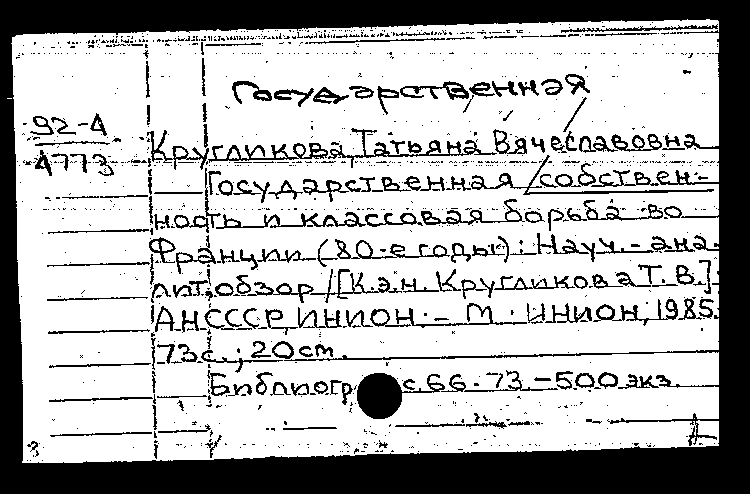 Государственная
92-4
4773
Кругликова, Татьяна Вячеславовна
Государственная /собствен-
ность и классовая борьба во
Франции (80-е годы): Науч.-ана-
лит. обзор / [К.э.н. Кругликова Т. В.];
АН СССР, ИНИОН. - М.: ИНИОН, 1985.
73 с.; 20 cm.
Библиогр с. 66-73. - 500 экз.